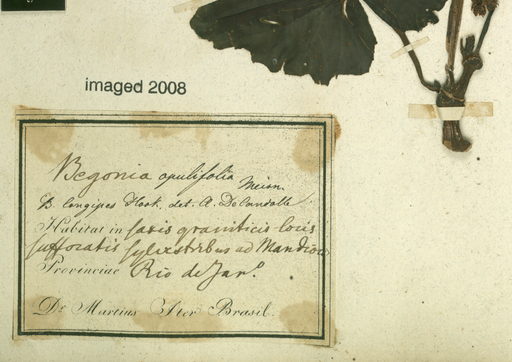 imaged 2008
Begonia opulifolia Meisn.
B longipes Hook. det. A. DeCandolle
Habitat in saxis graniticis locis
suffocatis sylvestribus ad Mandioc
Provinciae Rio de Jan.
Dr. Martius Iter Brasil.